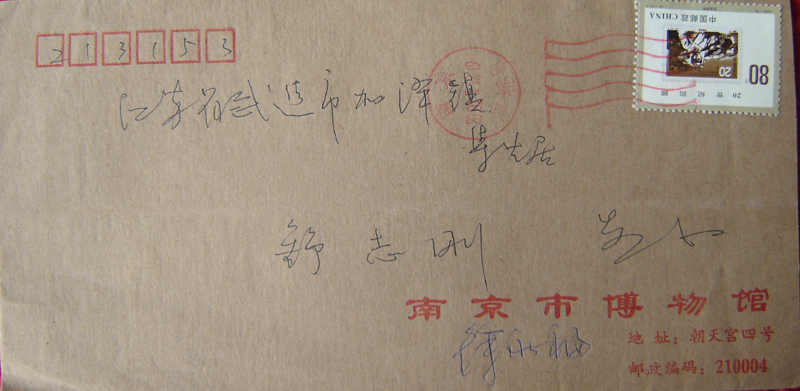 213153
中国邮政 CHINA
80
20
江苏省武进市加泽镇
舒志刚 先生
南京市博物馆
地址：朝天宫四号
邮政编码：210004